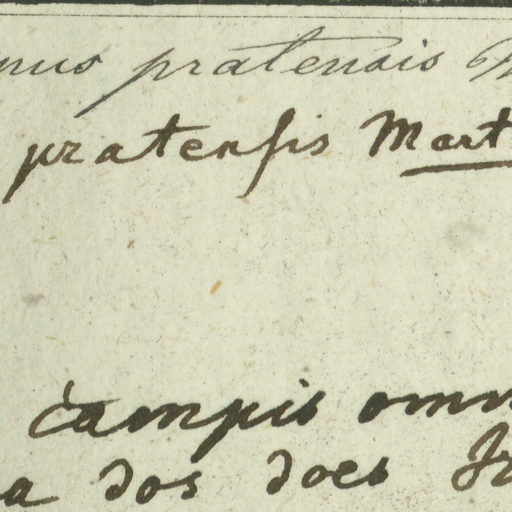 nus pratensis M
pratensis Mart
campis omn
a dos does Fr